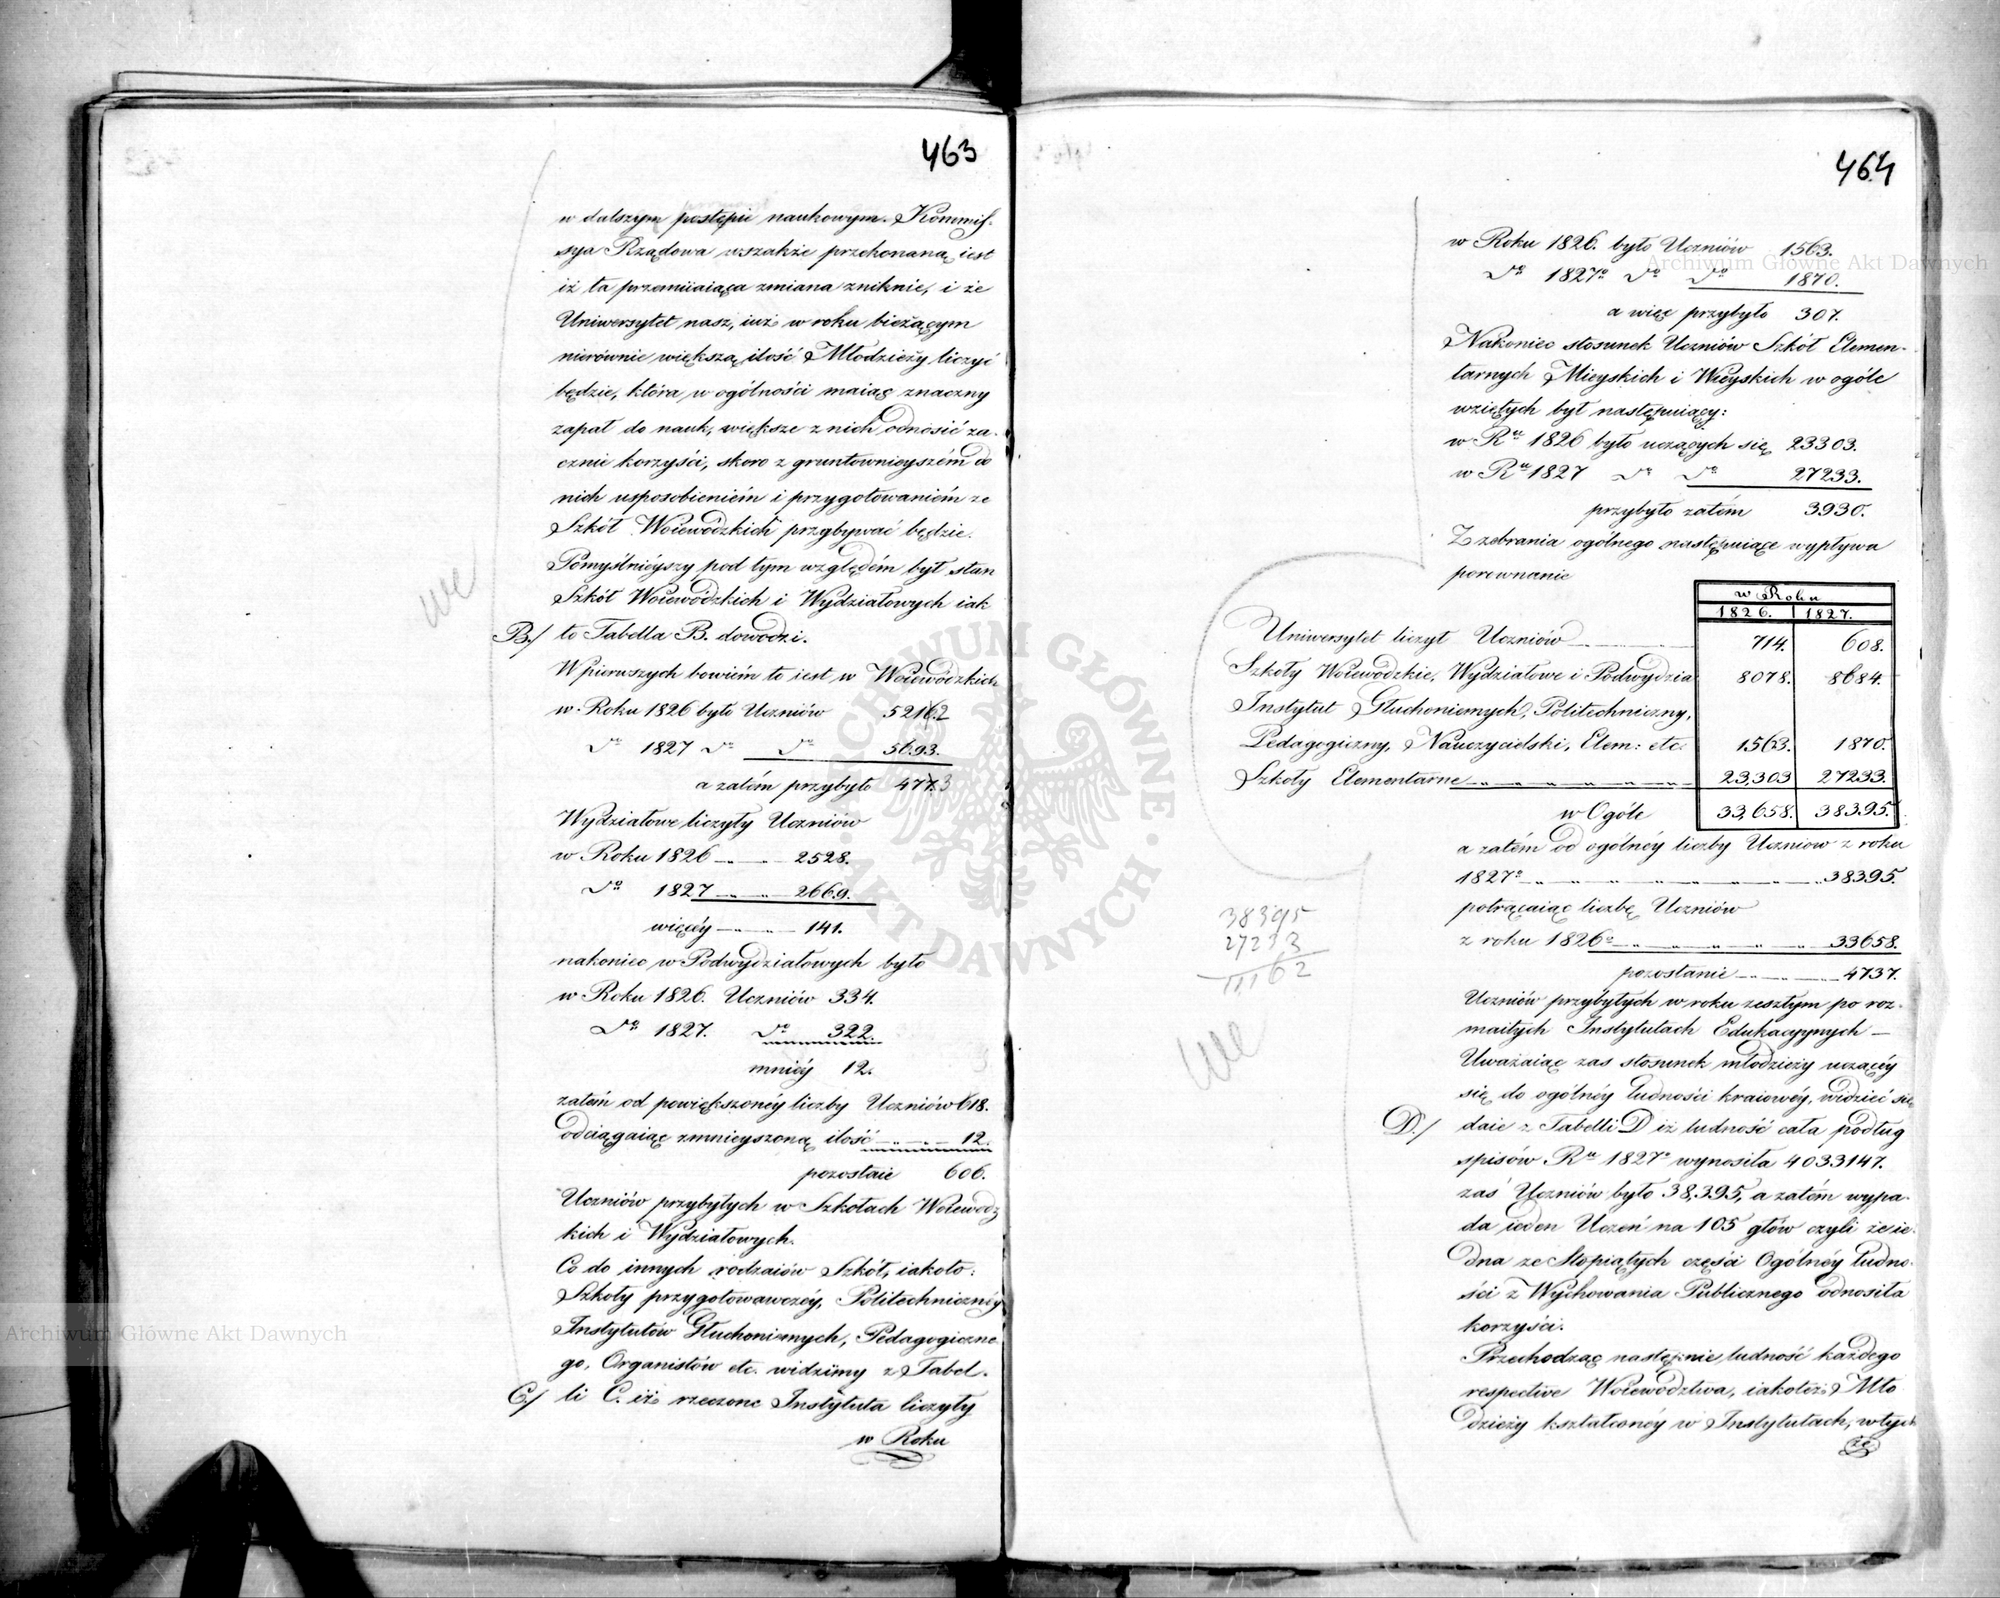 463
w dalszym postępie naukowym. Kommis-
sya Rządowa wszakże przekonaną iest
iż ta przemiiaiąca zmiana zniknie, i że
Uniwersytet nasz, iuż w roku bieżącym
nierównie większą ilość Młodzieży liczyć
będzie, która w ogólności maiąc znaczny
zapał do nauk, większe z nich odnosić za-
cznie korzyści, skoro z gruntownieyszém do
nich usposobieniém i przygotowaniém ze
Szkół Woiewódzkich przybywać będzie.
Pomyślniéyszy pod tym względém był stan
Szkół Woiewódzkich i Wydziałowych iak
B./ to Tabella B. dowodzi.
W pierwszych bowiém to iest w Woiewódzkich
w Roku 1826 było Uczniów 5216.
Do 1827 Do Do 5693.
a zatém przybyło 477.
Wydziałowe liczyły Uczniów
w Roku 1826 2528.
Do 1827 2669.
więcéy 141.
nakoniec w Podwydziałowych było
w Roku 1826. Uczniów 334.
Do 1827. Do 322.
mniéy 12.
zatém od powiększonéy liczby Uczniów 618.
odciągaiąc zmnieyszoną ilość 12.
pozostaie 606.
Uczniów przybyłych w Szkołach Woiewódz
kich i Wydziałowych.
Co do innych rodzaiów Szkół, iakoto:
Szkoły przygotowawczéy, Politechnicznéy
Instytutów Głuchoniemych, Pedagogiczne-
go, Organistów etc. widzimy z Tabel-
C./ li C. iż rzeczone Instytuta liczyły
w Roku
464
w Roku 1826. było Uczniów 1563.
Do 1827o Do Do 1870.
a więc przybyło 307.
Nakoniec stosunek Uczniów Szkół Elemen-
tarnych Mieyskich i Wieyskich w ogóle
wziętych był następuiący:
w Ru 1826 było uczących się 23303.
w Ru 1827 Do Do 27233.
przybyło zatém 3930.
Z zebrania ogólnego następuiące wypływa
porównanie
w Roku
1826. 1827.
Uniwersytet liczył Uczniów 714. 608.
Szkoły Woiewódzkie, Wydziałowe i Podwydzia 8078. 8684.
Instytut Głuchoniemych, Politechniczny,
Pedagogiczny, Nauczycielski, Elem: etc. 1563. 1870.
Szkoły Elementarne 23,303 27233.
w Ogóle 33,658. 38395.
a zatém od ogólnéy liczby Uczniów z roku
1827o 38395.
potrącaiąc liczbę Uczniów
z roku 1826o 33658.
pozostanie 4737.
Uczniów przybyłych w roku zeszłym po roz-
maitych Instytutach Edukacyynych —
Uważaiąc zas stosunek młodzieży uczącéy
się do ogólnéy ludności kraiowéy, widzieć się
D./ daie z Tabelli D iż ludność cała podług
spisów Ru 1827o wynosiła 4033147.
zaś Uczniów było 38,395, a zatém wypa-
da ieden Uczeń na 105 głów czyli że ie-
dna ze Stopiątych części Ogólnéy ludno-
ści z Wychowania Publicznego odnosiła
korzyści.
Przechodząc następnie ludność każdego
respective Woiewództwa, iakoteż Mło
dzieży kształconéy w Instytutach, w tych
że
38395
27233
11,162
ARCHIWUM GŁÓWNE AKT DAWNYCH
Archiwum Główne Akt Dawnych
Archiwum Główne Akt Dawnych